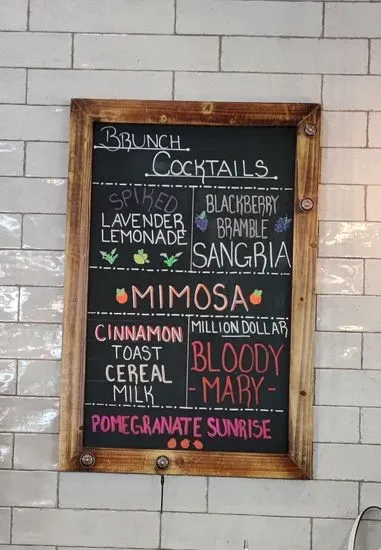 BRUNCH
COCKTAILS
SPIKED
LAVENDER
LEMONADE
BLACKBERRY
BRAMBLE
SANGRIA
MIMOSA
CINNAMON
TOAST
CEREAL
MILK
MILLION DOLLAR
BLOODY
- MARY -
POMEGRANATE SUNRISE